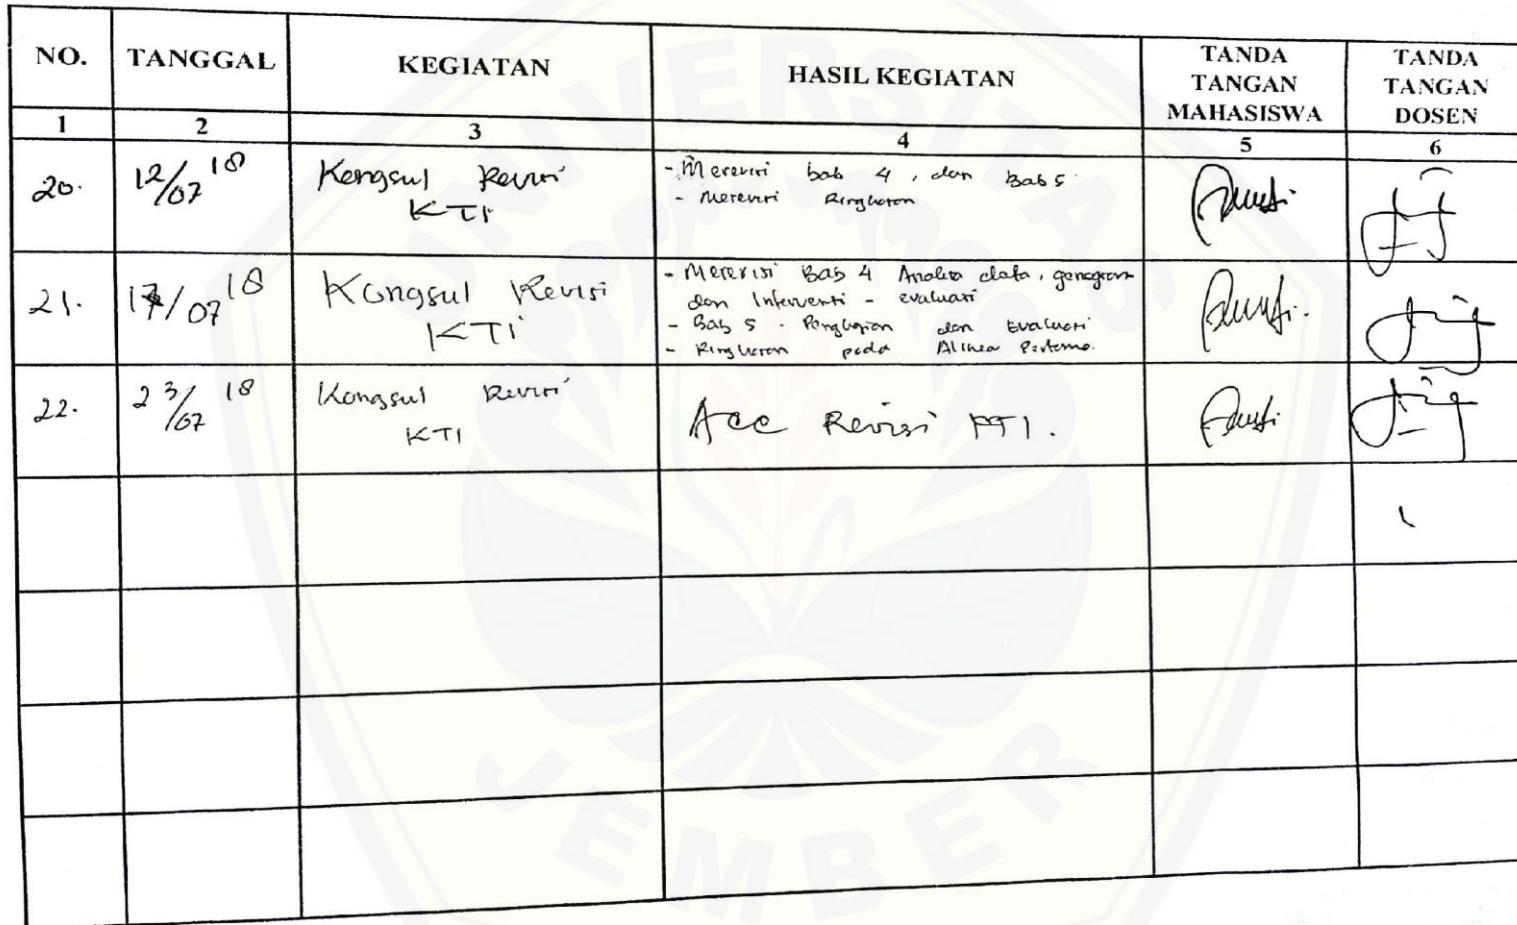 NO.
TANGGAL
KEGIATAN
HASIL KEGIATAN
TANDA
TANGAN
MAHASISWA
TANDA
TANGAN
DOSEN
1 2 3 4 5 6
20.
12/07 18
Kongsul Revisi
KTI
- Merevisi bab 4, dan Bab 5
- Merevisi Ringkasan
21.
17/07 18
Kongsul Revisi
KTI
- Merevisi Bab 4 Analisa data, genogram
dan Intervensi - evaluasi
- Bab 5 - Pengkajian dan Evaluasi
- Ringkasan pada Alinea Pertama.
22.
23/07 18
Kongsul Revisi
KTI
Acc Revisi KTI.
UNIVERSITAS
JEMBER